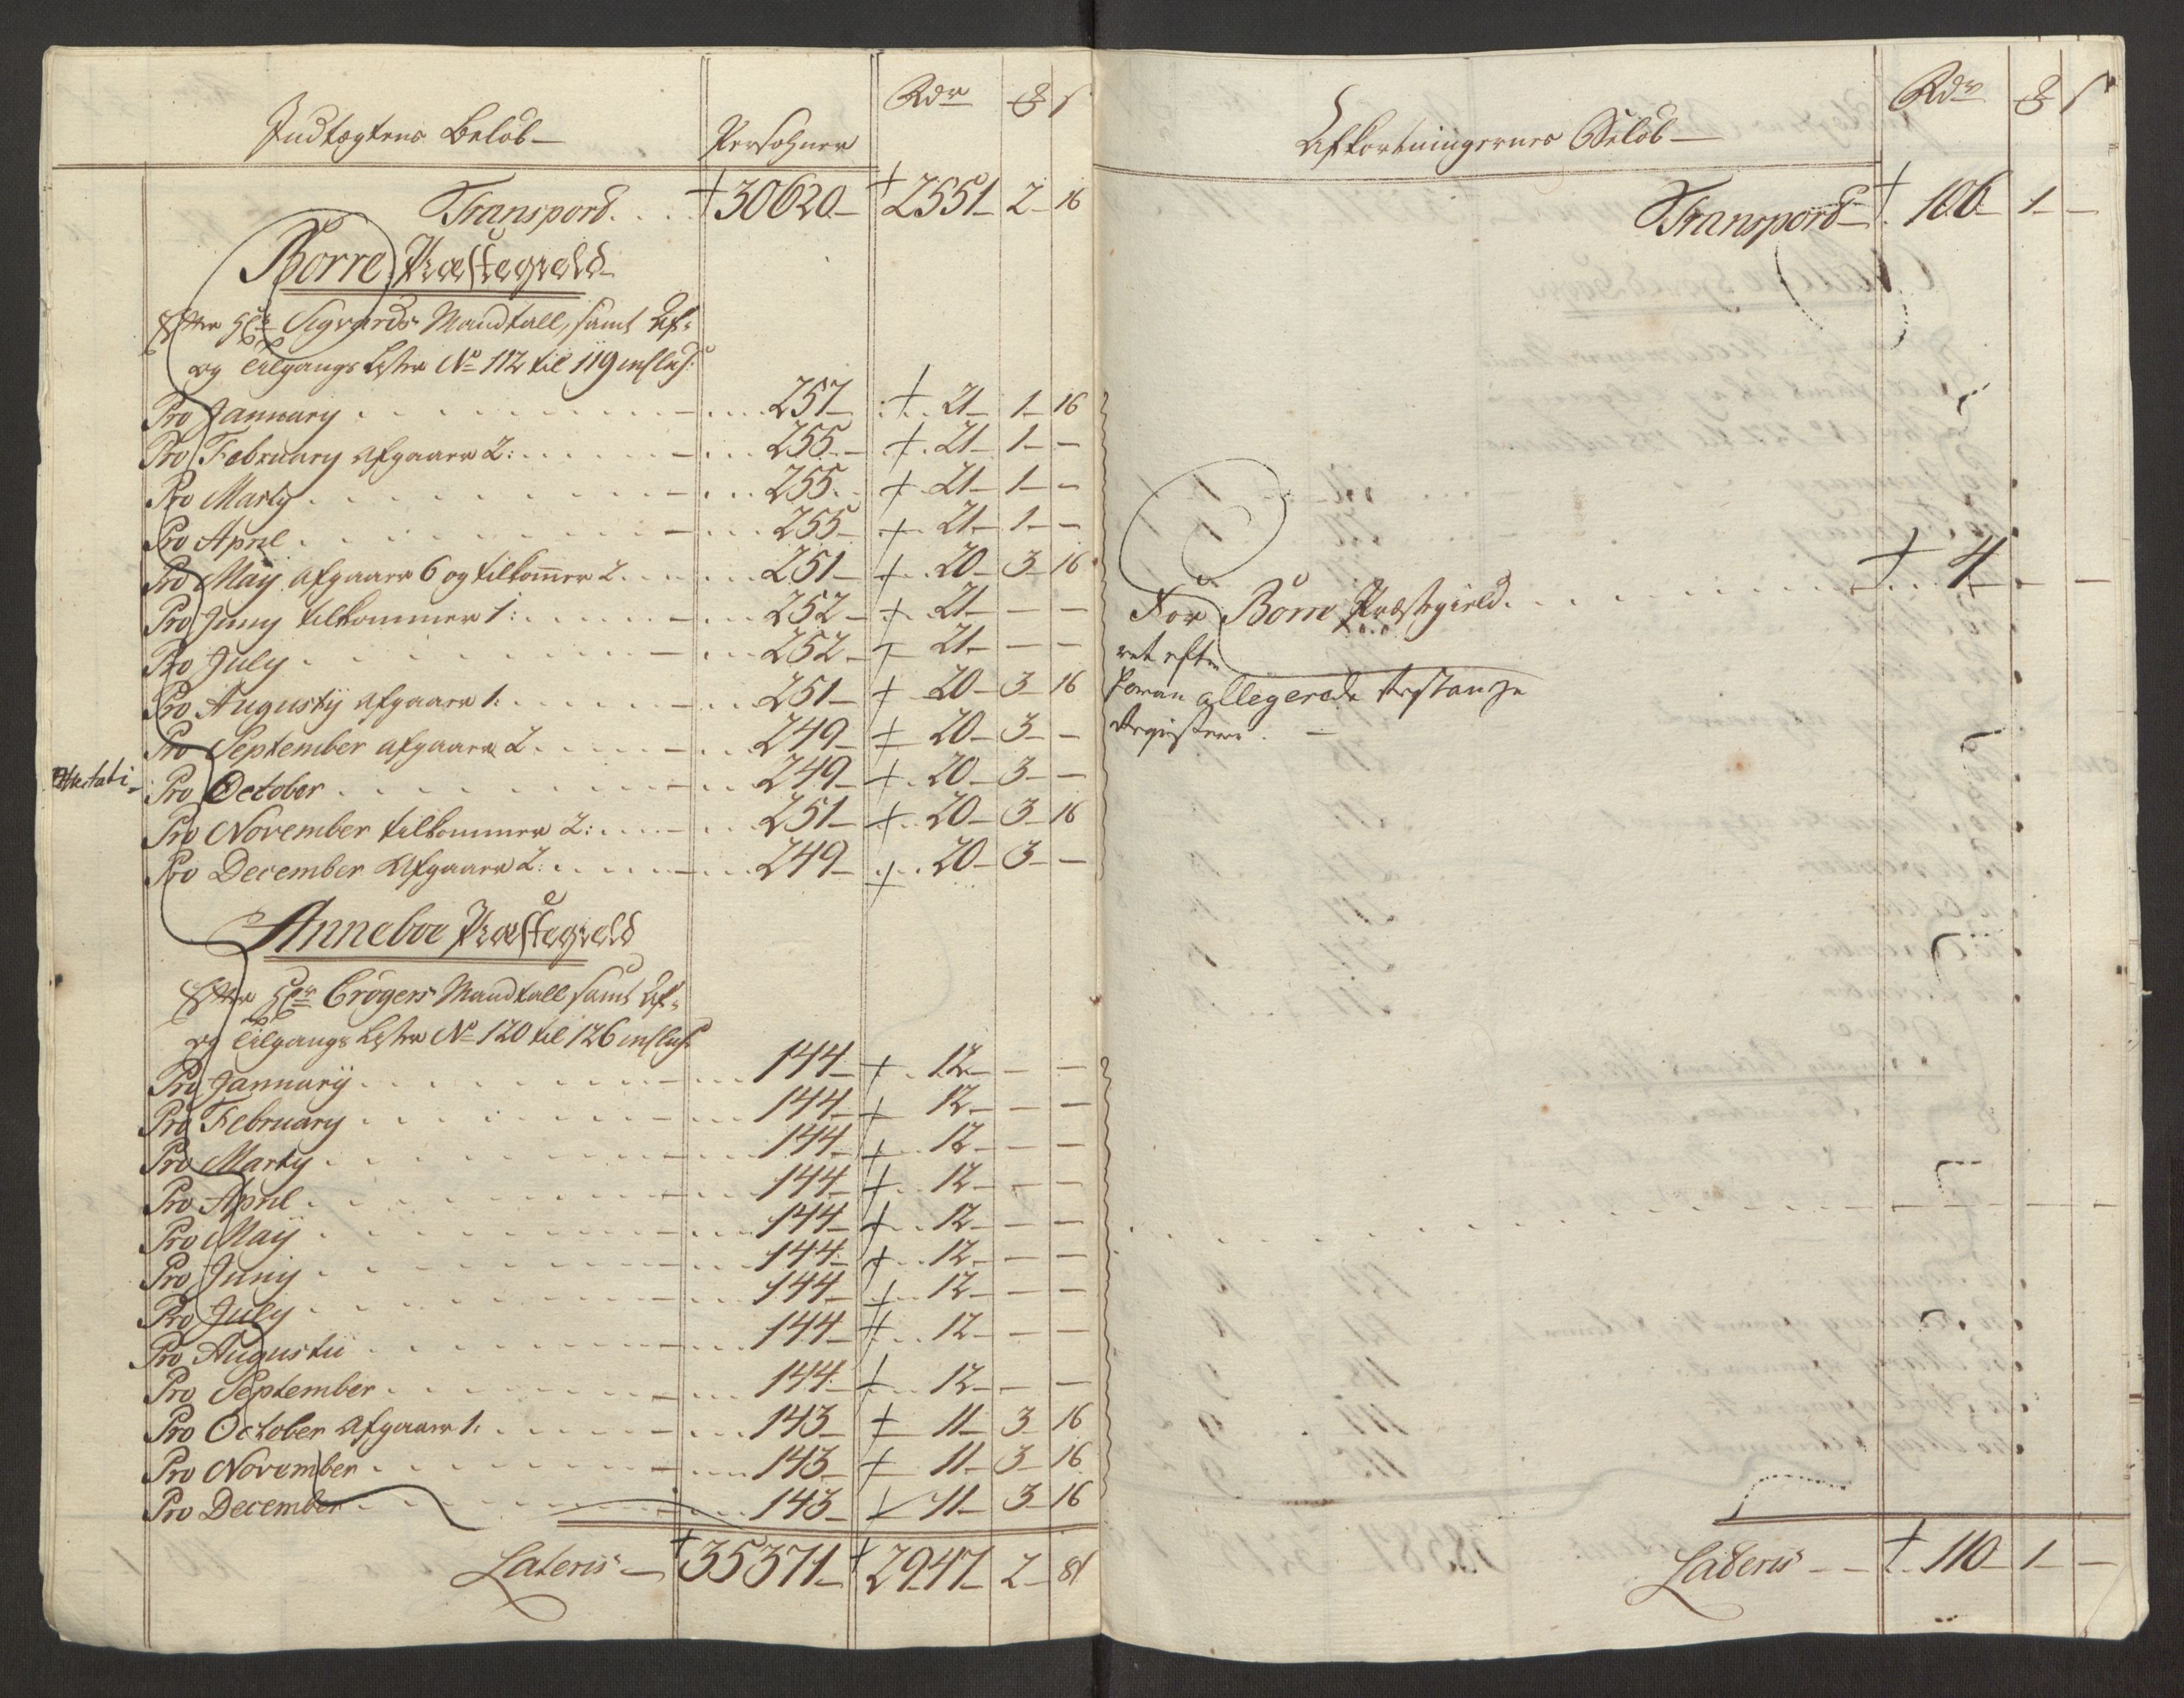 Indtægtens Beløb — Persohner Rdr ß
Transpord . . . 30620 — 2551 — 2 — 16
Borre Præstegield
Efter Hr Sigvards Mandtall, samt Af-
og Tilgangs Lister No 112 til 119 inclus:
Pro January . . . 257 — 21 — 1 — 16
Pro February afgaaer 2: . . . 255 — 21 — 1 — —
Pro Marty . . . 255 — 21 — 1 — —
Pro April . . . 255 — 21 — 1 — —
Pro Maÿ afgaaer 6 og tilkommer 2 . . . 251 — 20 — 3 — 16
Pro Juny tilkommer 1: . . . 252 — 21 — — —
Pro July . . . 252 — 21 — — —
Pro Augustÿ afgaaer 1. . . . 251 — 20 — 3 — 16
Pro September afgaaer 2 . . . 249 — 20 — 3 — —
Pro October . . . 249 — 20 — 3 — —
Pro November tilkommer 2: . . . 251 — 20 — 3 — 16
Pro December Afgaaer 2: . . . 249 — 20 — 3 — —
Anneboe Præstegield
Efter Hr Crögers Mandtall samt Af-
og Tilgangs Lister No 120 til 126 inclus
Pro Januarÿ . . . 144 — 12 — — —
Pro February . . . 144 — 12 — — —
Pro Marty . . . 144 — 12 — — —
Pro April . . . 144 — 12 — — —
Pro Maÿ . . . 144 — 12 — — —
Pro Juny . . . 144 — 12 — — —
Pro July . . . 144 — 12 — — —
Pro Augustii . . . 144 — 12 — — —
Pro September . . . 144 — 12 — — —
Pro October Afgaaer 1. . . . 143 — 11 — 3 — 16
Pro November . . . 143 — 11 — 3 — 16
Pro December . . . 143 — 11 — 3 — 16
Lateris — 35371 — 2947 — 2 — 8
Afkortningernes Beløb — Rdr ß
Transpord — 106 — 1 — —
For Borre Præstegield . . . 4 — — —
allegerede
Lateris — 110 — 1 — —